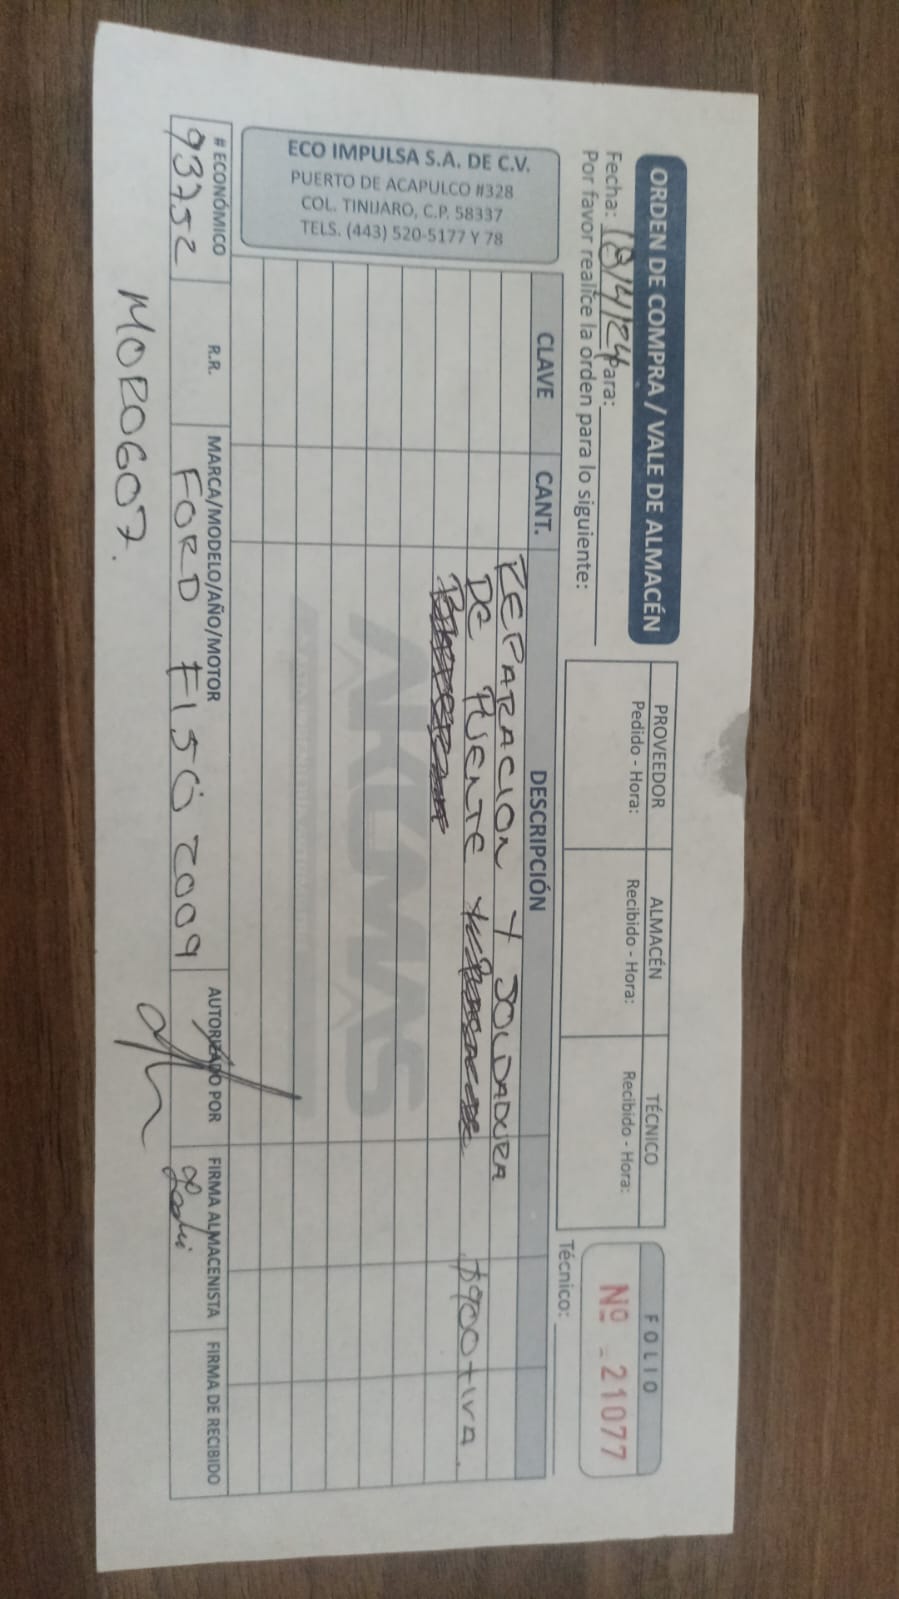 ORDEN DE COMPRA / VALE DE ALMACÉN
Fecha: 18/4/24 Para:
Por favor realice la orden para lo siguiente:
PROVEEDOR
Pedido - Hora:
ALMACÉN
Recibido - Hora:
TÉCNICO
Recibido - Hora:
FOLIO
Nº 21077
Técnico:
ECO IMPULSA S.A. DE C.V.
PUERTO DE ACAPULCO #328
COL. TINIJARO, C.P. 58337
TELS. (443) 520-5177 Y 78
CLAVE CANT. DESCRIPCIÓN
REPARACION Y SOLDADURA
DE PUENTE
$900 + IVA.
AKUMAS
# ECONÓMICO R.R. MARCA/MODELO/AÑO/MOTOR AUTORIZADO POR FIRMA ALMACENISTA FIRMA DE RECIBIDO
93752 FORD F150 2009
MOR0607.